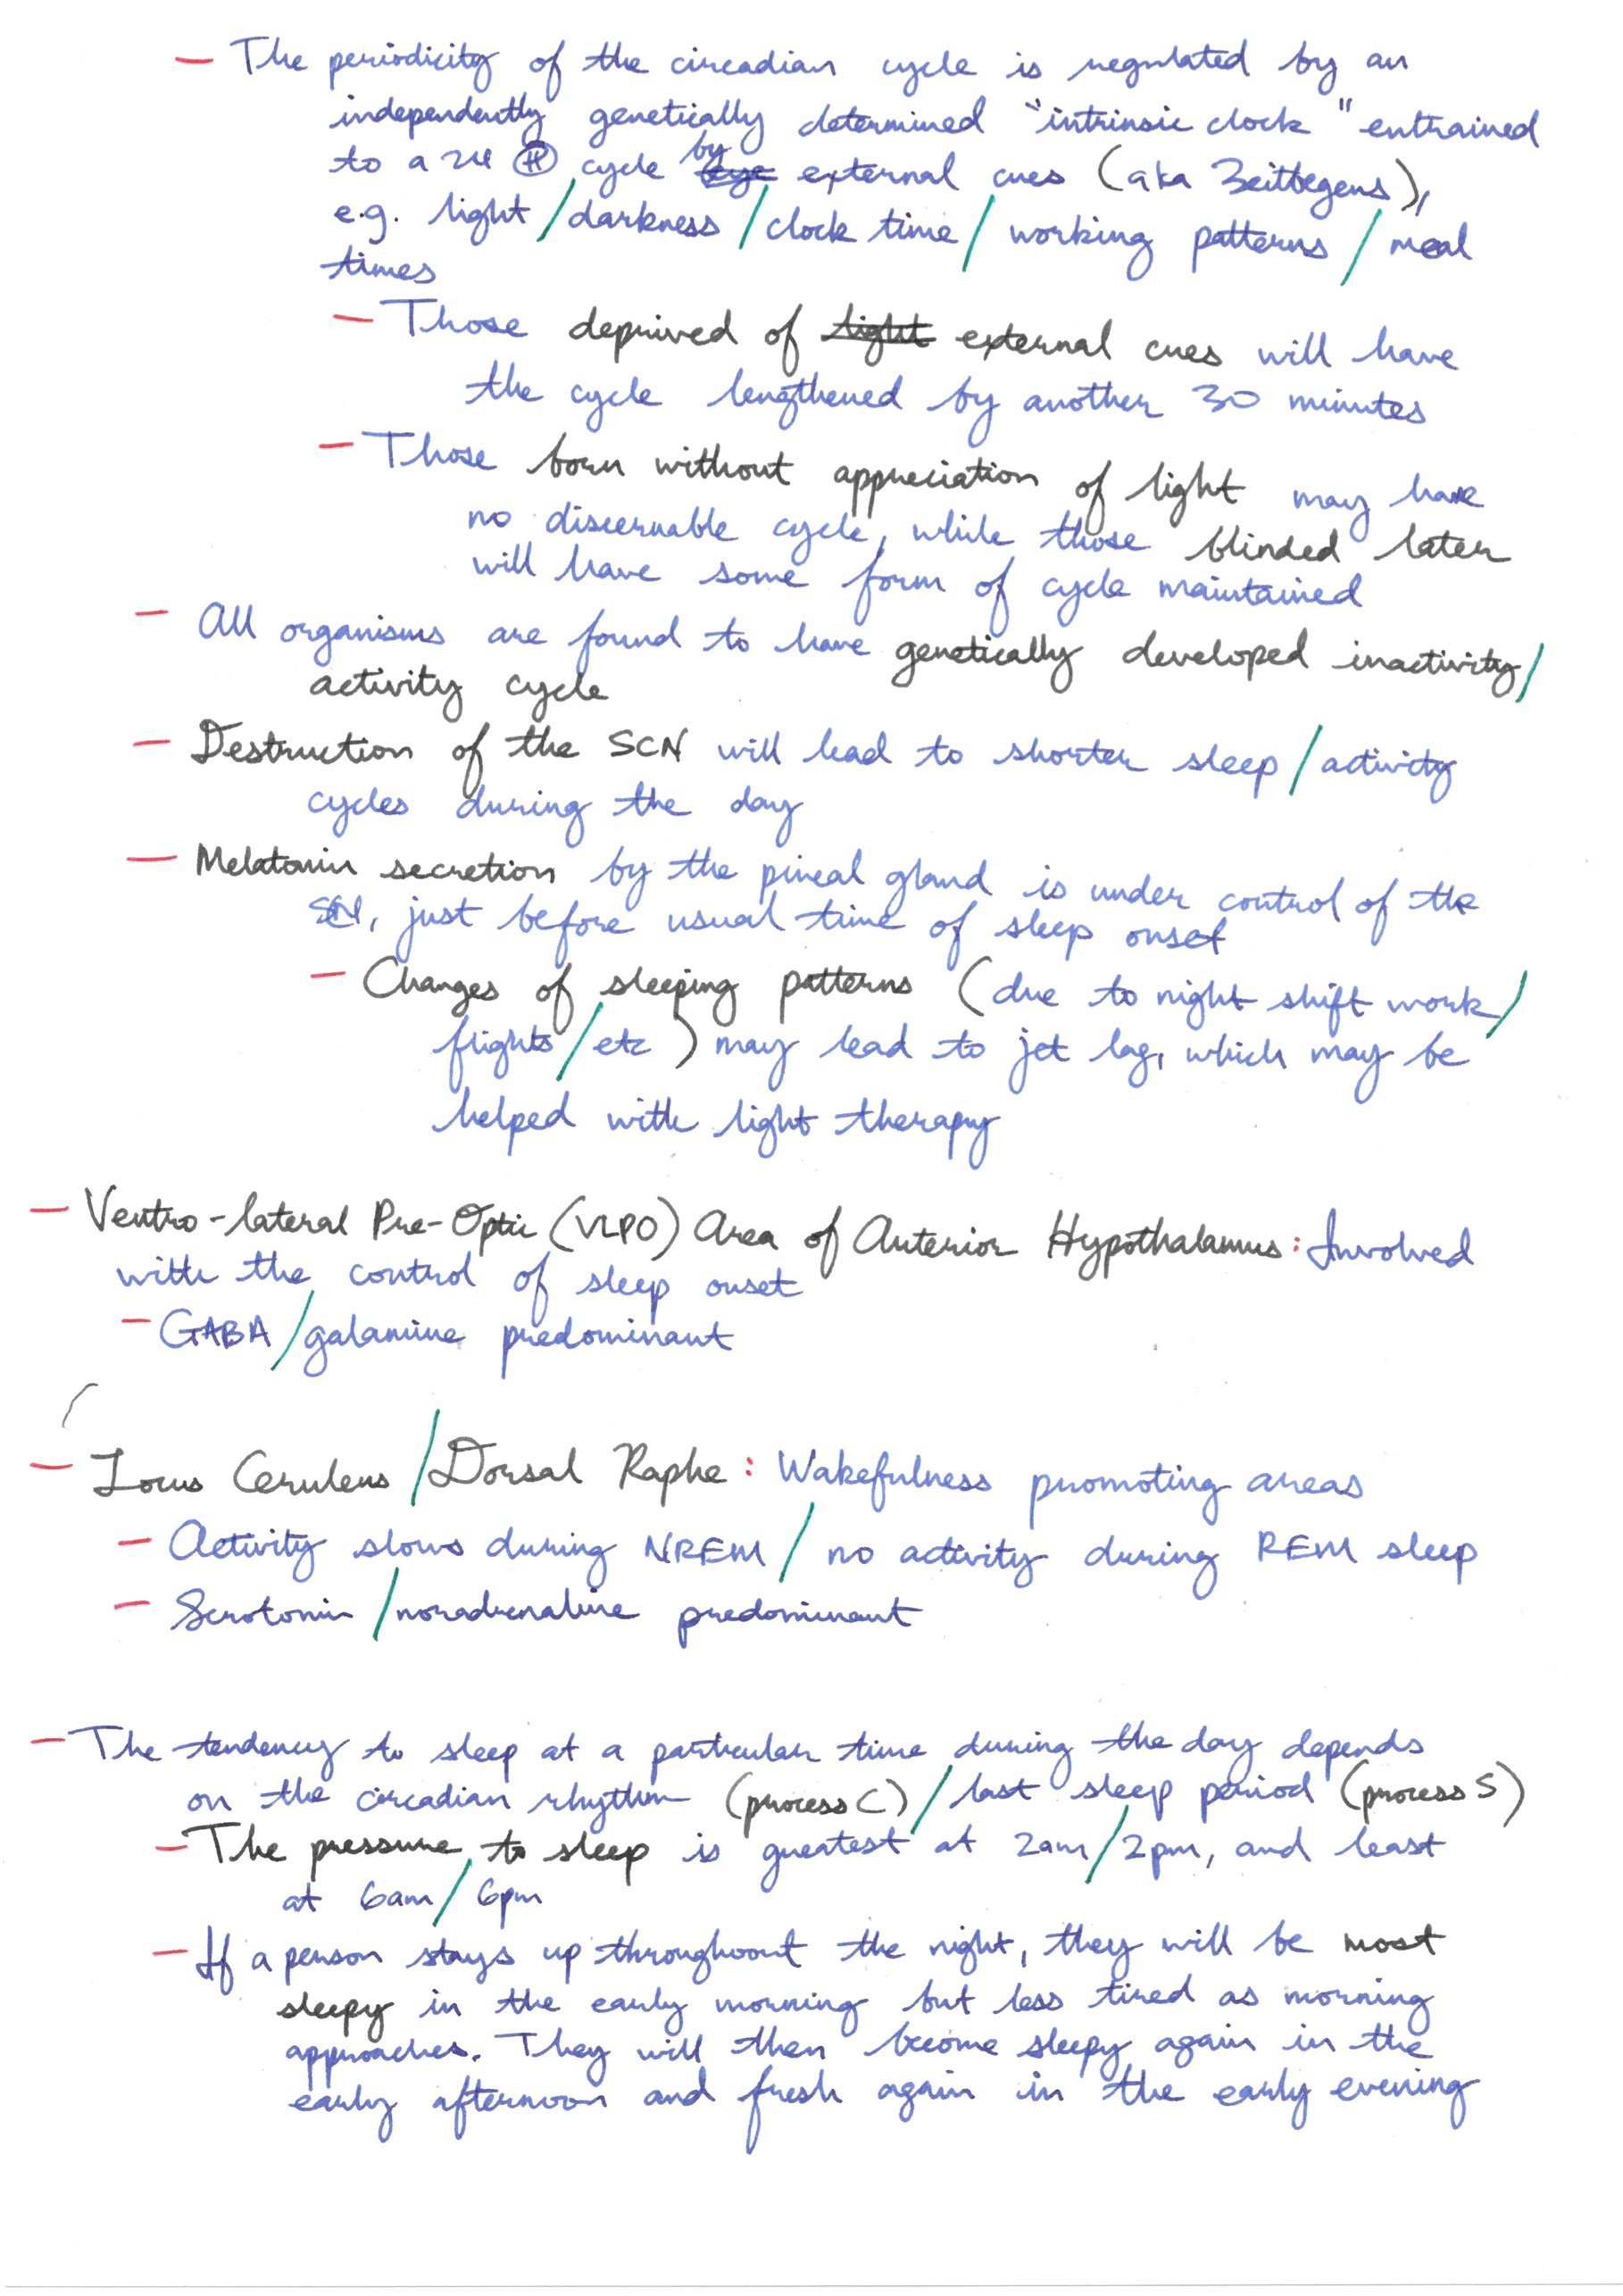 - The periodicity of the circadian cycle is regulated by an
independently genetically determined "intrinsic clock" entrained
to a 24 Ⓗ cycle by external cues (aka Zeitbegens),
e.g. light / darkness / clock time / working patterns / meal
times
- Those deprived of light external cues will have
the cycle lengthened by another 30 minutes
- Those born without appreciation of light may have
no discernable cycle, while those blinded later
will have some form of cycle maintained
- All organisms are found to have genetically developed inactivity /
activity cycle
- Destruction of the SCN will lead to shorter sleep / activity
cycles during the day
- Melatonin secretion by the pineal gland is under control of the
SCN, just before usual time of sleep onset
- Changes of sleeping patterns (due to night shift work /
flights / etc) may lead to jet lag, which may be
helped with light therapy
- Ventro-lateral Pre-Optic (VLPO) Area of Anterior Hypothalamus: Involved
with the control of sleep onset
- GABA / galamine predominant
- Locus Ceruleus / Dorsal Raphe: Wakefulness promoting areas
- Activity slows during NREM / no activity during REM sleep
- Serotonin / noradrenaline predominant
- The tendency to sleep at a particular time during the day depends
on the circadian rhythm (process C) / last sleep period (process S)
- The pressure to sleep is greatest at 2am / 2pm, and least
at 6am / 6pm
- If a person stays up throughout the night, they will be most
sleepy in the early morning but less tired as morning
approaches. They will then become sleepy again in the
early afternoon and fresh again in the early evening